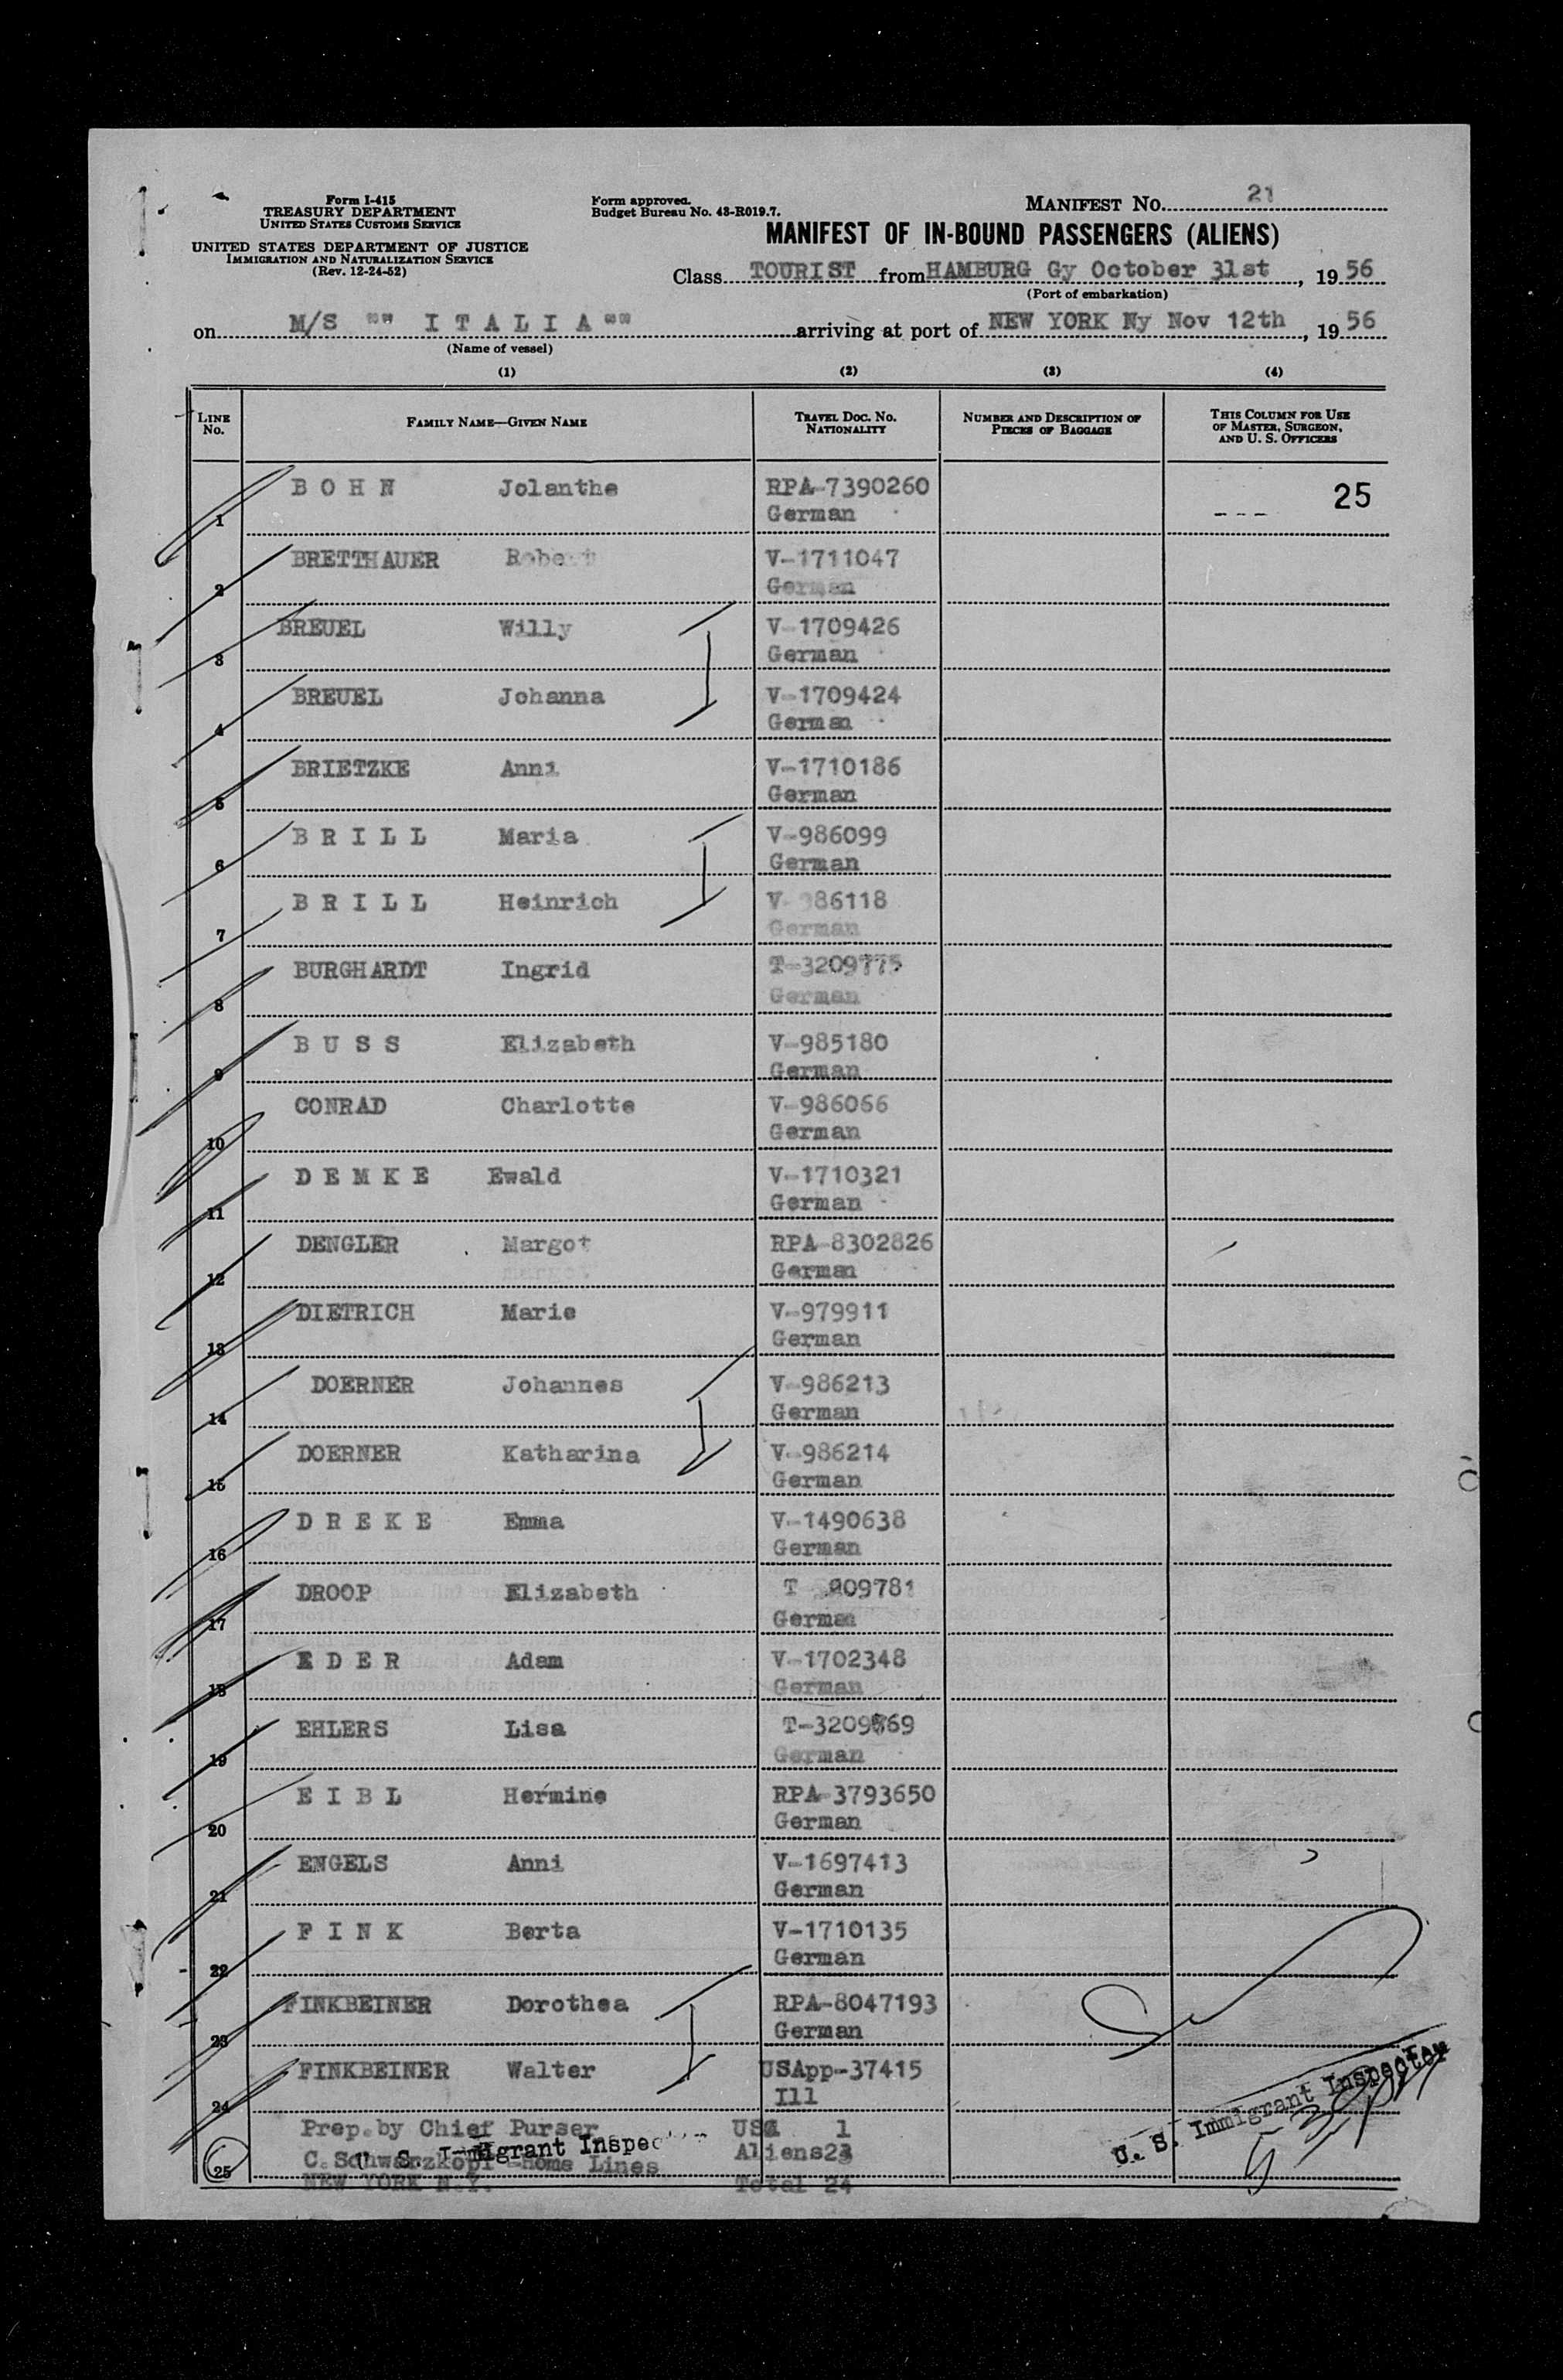 Form I-415
TREASURY DEPARTMENT
UNITED STATES CUSTOMS SERVICE
UNITED STATES DEPARTMENT OF JUSTICE
IMMIGRATION AND NATURALIZATION SERVICE
(Rev. 12-24-52)
Form approved.
Budget Bureau No. 43-R019.7.
MANIFEST NO. 21
MANIFEST OF IN-BOUND PASSENGERS (ALIENS)
Class TOURIST from HAMBURG Gy October 31st, 19 56
(Port of embarkation)
on M/S "" I T A L I A "" arriving at port of NEW YORK Ny Nov 12th, 19 56
(Name of vessel)
(1) (2) (3) (4)
LINE No. FAMILY NAME—GIVEN NAME TRAVEL DOC. NO. NATIONALITY NUMBER AND DESCRIPTION OF PIECES OF BAGGAGE THIS COLUMN FOR USE OF MASTER, SURGEON, AND U. S. OFFICERS
1 B O H N Jolanthe RPA-7390260 25
German
2 BRETTHAUER Robert V-1711047
German
3 BREUEL Willy V-1709426
German
4 BREUEL Johanna V-1709424
German
5 BRIETZKE Anni V-1710186
German
6 B R I L L Maria V-986099
German
7 B R I L L Heinrich V- 86118
German
8 BURGHARDT Ingrid T-3209775
German
9 B U S S Elizabeth V-985180
German
10 CONRAD Charlotte V-986066
German
11 D E M K E Ewald V-1710321
German
12 DENGLER Margot RPA-8302826
German
13 DIETRICH Marie V-979911
German
14 DOERNER Johannes V-986213
German
15 DOERNER Katharina V-986214
German
16 D R E K E Emma V-1490638
German
17 DROOP Elizabeth T 09781
German
18 E D E R Adam V-1702348
German
19 EHLERS Lisa
German
20 E I B L Hermine RPA-3793650
German
21 ENGELS Anni V-1697413
German
22 F I N K Berta V-1710135
German
23 FINKBEINER Dorothea RPA-8047193
German
24 FINKBEINER Walter USApp-37415
Ill
25 Prep.by Chief Purser USA 1
C.Schwarzkopf -Home Lines Aliens23
NEW YORK N.Y. Total 24
U. S. Immigrant Inspector
U. S. Immigrant Inspector